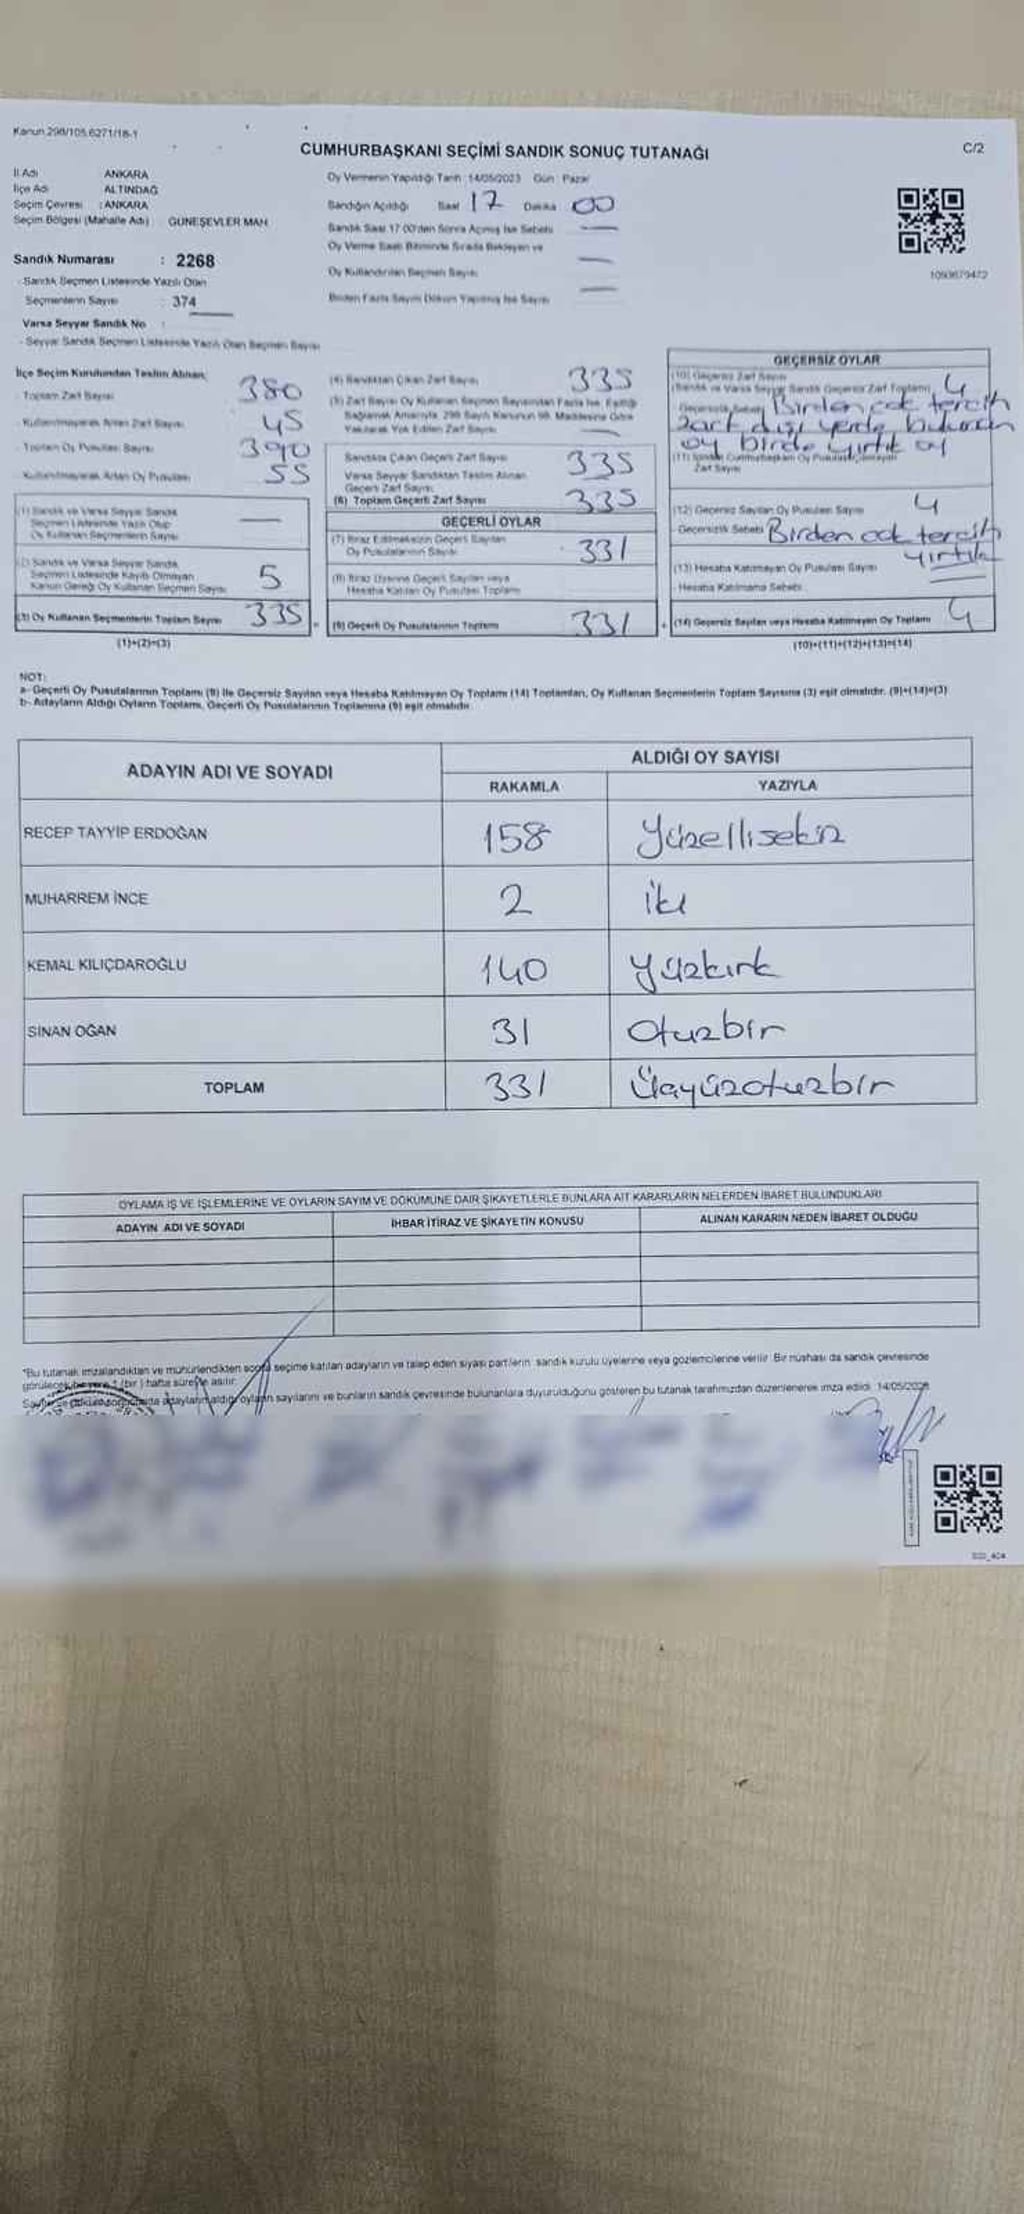 Kanun 298/105,6271/18-1
CUMHURBAŞKANI SEÇİMİ SANDIK SONUÇ TUTANAĞI
C/2
İl Adı : ANKARA
İlçe Adı : ALTINDAĞ
Seçim Çevresi : ANKARA
Seçim Bölgesi (Mahalle Adı) : GÜNEŞEVLER MAH.
Sandık Numarası : 2268
- Sandık Seçmen Listesinde Yazılı Olan
Seçmenlerin Sayısı : 374
Varsa Seyyar Sandık No :
- Seyyar Sandık Seçmen Listesinde Yazılı Olan Seçmen Sayısı
Oy Vermenin Yapıldığı Tarih : 14/05/2023 Gün : Pazar
Sandığın Açıldığı Saat 17 Dakika 00
Sandık Saat 17:00'den Sonra Açılmış İse Sebebi —
Oy Verme Saati Bitiminde Sırada Bekleyen ve
Oy Kullandırılan Seçmen Sayısı —
Birden Fazla Sayım Döküm Yapılmış İse Sayısı —
1093679472
İlçe Seçim Kurulundan Teslim Alınan;
- Toplam Zarf Sayısı 380
- Kullanılmayarak Artan Zarf Sayısı 45
- Toplam Oy Pusulası Sayısı 390
- Kullanılmayarak Artan Oy Pusulası 55
(1) Sandık ve Varsa Seyyar Sandık
Seçmen Listesinde Yazılı Olup
Oy Kullanan Seçmenlerin Sayısı —
(2) Sandık ve Varsa Seyyar Sandık
Seçmen Listesinde Kayıtlı Olmayan
Kanun Gereği Oy Kullanan Seçmen Sayısı 5
(3) Oy Kullanan Seçmenlerin Toplam Sayısı 335
(1)+(2)=(3)
(4) Sandıktan Çıkan Zarf Sayısı 335
(5) Zarf Sayısı Oy Kullanan Seçmen Sayısından Fazla İse, Eşitliği
Sağlamak Amacıyla, 298 Sayılı Kanunun 98. Maddesine Göre
Yakılarak Yok Edilen Zarf Sayısı —
Sandıkta Çıkan Geçerli Zarf Sayısı 335
Varsa Seyyar Sandıktan Teslim Alınan
Geçerli Zarf Sayısı
(6) Toplam Geçerli Zarf Sayısı 335
GEÇERLİ OYLAR
(7) İtiraz Edilmeksizin Geçerli Sayılan
Oy Pusulalarının Sayısı 331
(8) İtiraz Üzerine Geçerli Sayılan veya
Hesaba Katılan Oy Pusulası Toplamı
(9) Geçerli Oy Pusulalarının Toplamı 331
GEÇERSİZ OYLAR
(10) Geçersiz Zarf Sayısı
(Sandık ve Varsa Seyyar Sandık Geçersiz Zarf Toplamı) 4
Geçersizlik Sebebi Birden çok tercih
zarf dışı yerde bulunan
oy birde yırtık oy
Zarf Sayısı
(12) Geçersiz Sayılan Oy Pusulası Sayısı 4
Geçersizlik Sebebi Birden çok tercih
yırtık
(13) Hesaba Katılmayan Oy Pusulası Sayısı —
Hesaba Katılmama Sebebi
(14) Geçersiz Sayılan veya Hesaba Katılmayan Oy Toplamı 4
(10)+(11)+(12)+(13)=(14)
NOT:
a- Geçerli Oy Pusulalarının Toplamı (9) ile Geçersiz Sayılan veya Hesaba Katılmayan Oy Toplamı (14) Toplamları, Oy Kullanan Seçmenlerin Toplam Sayısına (3) eşit olmalıdır. (9)+(14)=(3)
b- Adayların Aldığı Oyların Toplamı, Geçerli Oy Pusulalarının Toplamına (9) eşit olmalıdır.
ADAYIN ADI VE SOYADI
ALDIĞI OY SAYISI
RAKAMLA YAZIYLA
RECEP TAYYİP ERDOĞAN 158 Yüzellisekiz
MUHARREM İNCE 2 iki
KEMAL KILIÇDAROĞLU 140 Yüzkırk
SİNAN OĞAN 31 Otuzbir
TOPLAM 331 Üçyüzotuzbir
OYLAMA İŞ VE İŞLEMLERİNE VE OYLARIN SAYIM VE DÖKÜMÜNE DAİR ŞİKAYETLERLE BUNLARA AİT KARARLARIN NELERDEN İBARET BULUNDUKLARI
ADAYIN ADI VE SOYADI İHBAR İTİRAZ VE ŞİKAYETİN KONUSU ALINAN KARARIN NEDEN İBARET OLDUĞU
*Bu tutanak imzalandıktan ve mühürlendikten sonra seçime katılan adayların ve talep eden siyasi partilerin sandık kurulu üyelerine veya gözlemcilerine verilir. Bir nüshası da sandık çevresinde
görülecek bir yere 1 (bir) hafta süreyle asılır.
adayların aldığı oyların sayılarını ve bunların sandık çevresinde bulunanlara duyurulduğunu gösteren bu tutanak tarafımızdan düzenlenerek imza edildi. 14/05/2023